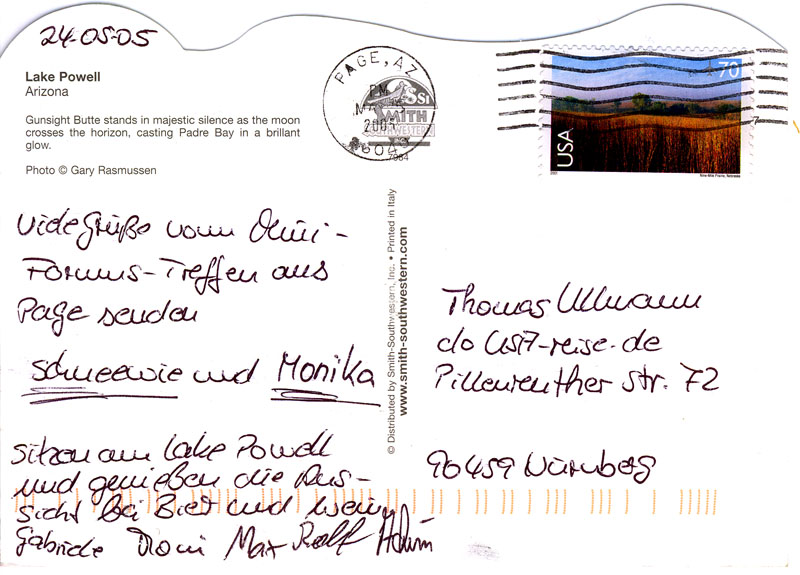 24-05-05
Lake Powell
Arizona
Gunsight Butte stands in majestic silence as the moon
crosses the horizon, casting Padre Bay in a brillant
glow.
Photo © Gary Rasmussen
PAGE, AZ
PM
2005
SSI
SMITH
SOUTHWESTERN
7984
70
USA
© Distributed by Smith-Southwestern, Inc. • Printed in Italy
www.smith-southwestern.com
Viele Grüße vom Mini-
Forums-Treffen aus
Page senden
Schneewie und Monika
Sitzen am Lake Powell
und genießen die Aus-
sicht bei Bier und Wein
Gabriele Roni Max Rolf
Thomas Ullmann
c/o USA-reise.de
Pillenreuther Str. 72
90459 Nürnberg